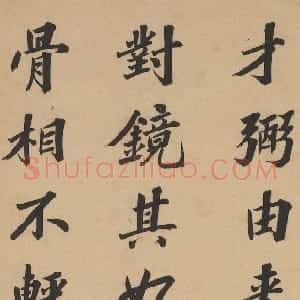 才弼由來
對鏡其如
骨相不輕
Shufaziliao.com